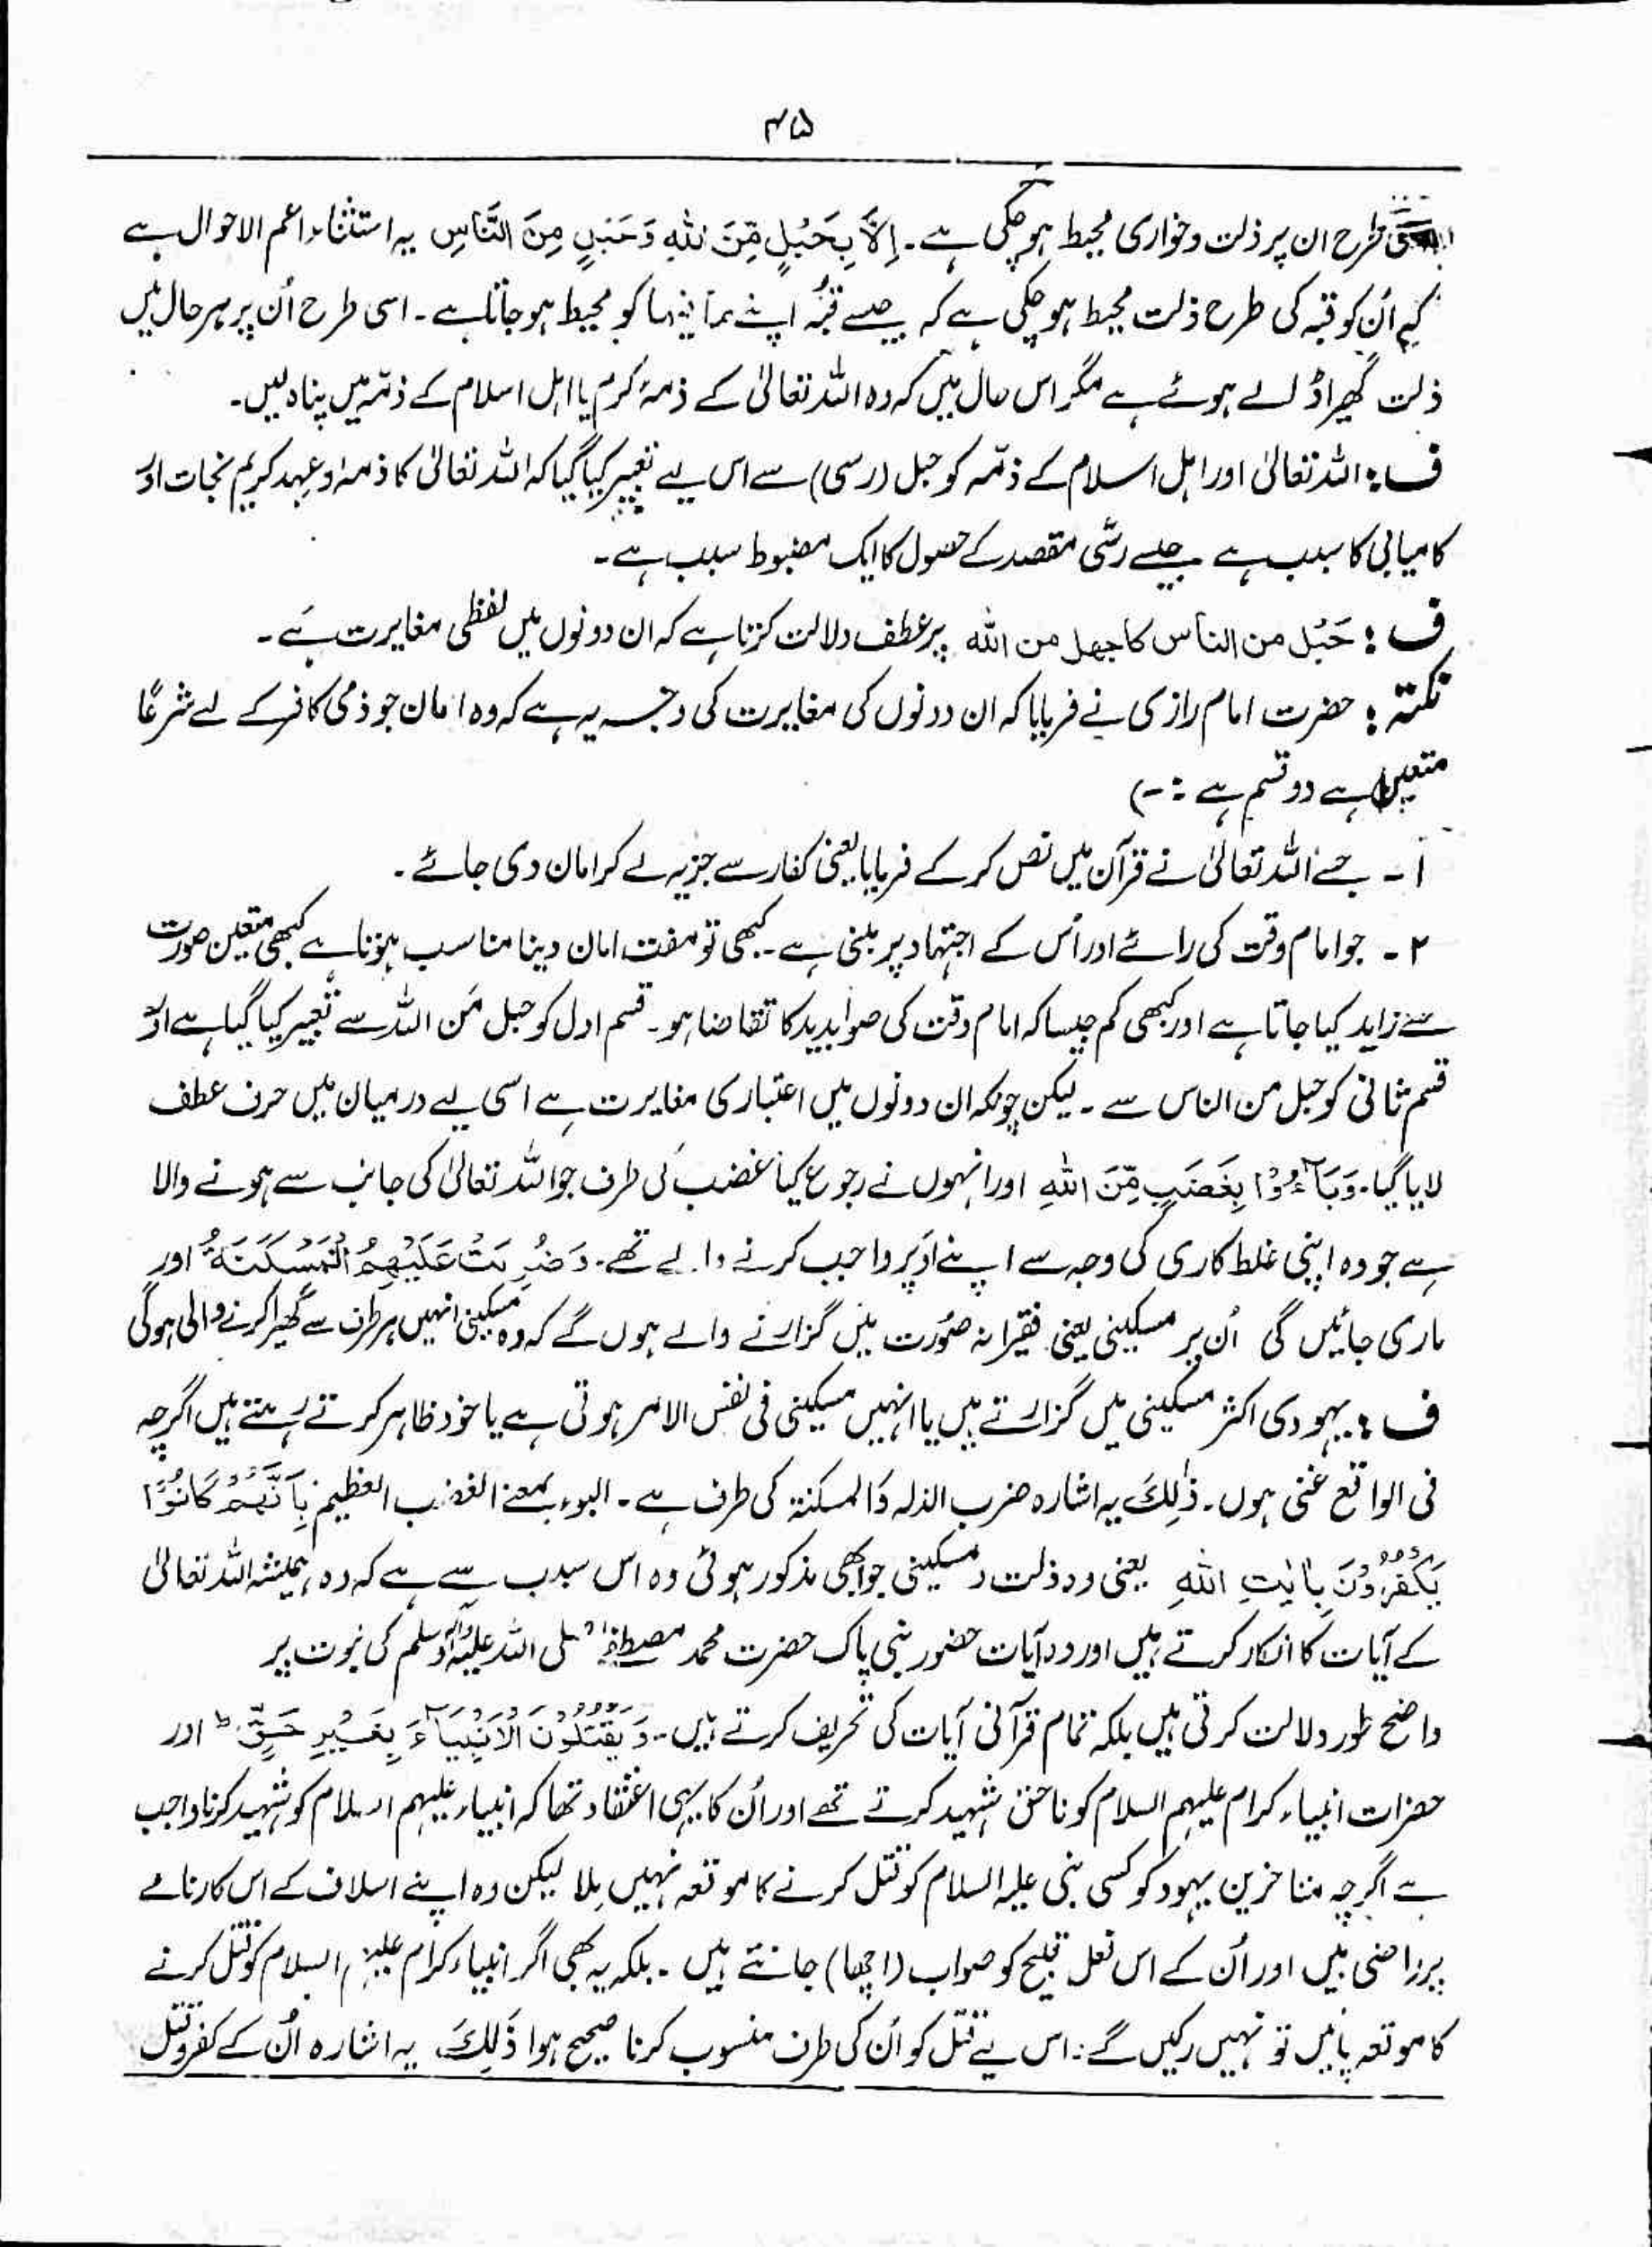 ۴۵
طرح ان پر ذلت وخواری محیط ہو چکی ہے۔ اِلَّا بِحَبْلٍ مِّنَ اللّٰهِ وَحَبْلٍ مِنَ النَّاسِ یہ استثناء اعم الاحوال ہے
کہ اُن کو قبہ کی طرح ذلت محیط ہو چکی ہے کہ جیسے قبّہ اپنے مافیہا کو محیط ہو جاتا ہے۔ اسی طرح اُن پر ہر حال میں
ذلت گھیرا ڈالے ہوئے ہے مگر اس حال میں کہ وہ اللہ تعالیٰ کے ذمۂ کرم یا اہل اسلام کے ذمّہ میں پناہ لیں۔
ف: اللہ تعالیٰ اور اہل اسلام کے ذمّہ کو حبل (رسی) سے اس لیے تعبیر کیا گیا کہ اللہ تعالیٰ کا ذمہ و عہد کریم نجات اور
کامیابی کا سبب ہے جیسے رسّی مقصد کے حصول کا ایک مضبوط سبب ہے۔
ف: حَبْل من الناس کا حبل من الله پر عطف دلالت کرتا ہے کہ ان دونوں میں لفظی مغایرت ہے۔
نکتہ: حضرت امام رازی نے فرمایا کہ ان دونوں کی مغایرت کی وجہ یہ ہے کہ وہ امان جو ذمی کافر کے لے شرعًا
متعین ہے دو قسم ہے :-)
۱- جسے اللہ تعالیٰ نے قرآن میں نص کر کے فرمایا یعنی کفار سے جزیہ لے کر امان دی جائے۔
۲- جو امام وقت کی رائے اور اُس کے اجتہاد پر مبنی ہے۔ کبھی تو مفت امان دینا مناسب ہوتا ہے کبھی متعین صورت
سے زاید کیا جاتا ہے اور کبھی کم جیسا کہ امام وقت کی صوابدید کا تقاضا ہو۔ قسم اول کو حبل مَن اللہ سے تعبیر کیا گیا ہے اور
قسم ثانی کو حبل من الناس سے۔ لیکن چونکہ ان دونوں میں اعتباری مغایرت ہے اسی لیے درمیان میں حرف عطف
لایا گیا۔ وَبَآءُوْا بِغَضَبٍ مِّنَ اللهِ اور انہوں نے رجوع کیا غضب کی طرف جو اللہ تعالیٰ کی جانب سے ہونے والا
ہے جو وہ اپنی غلط کاری کی وجہ سے اپنے اُوپر واجب کرنے والے تھے۔ وَضُرِبَتْ عَلَيْهِمُ الْمَسْكَنَةُ اور
ماری جائیں گی اُن پر مسکینی یعنی فقیرانہ صُورت میں گزارنے والے ہوں گے کہ وہ مسکینی انہیں ہر طرف سے گھیرا کرنے والی ہوگی
ف: یہودی اکثر مسکینی میں گزارتے ہیں یا انہیں مسکینی فی نفس الامر ہوتی ہے یا خود ظاہر کرتے رہتے ہیں اگرچہ
فی الواقع غنی ہوں۔ ذٰلِكَ یہ اشارہ ضرب الذلہ والمسکنۃ کی طرف ہے۔ البوء بمعنے الغضب العظیم بِاَنَّهُمْ كَانُوْا
يَكْفُرُوْنَ بِاٰيٰتِ اللهِ یعنی وہ ذلت و مسکینی جو ابھی مذکور ہوئی وہ اس سبب سے ہے کہ وہ ہمیشہ اللہ تعالیٰ
کے آیات کا انکار کرتے ہیں اور وہ آیات حضور نبی پاک حضرت محمد مصطفیٰ صلی اللہ علیہ وآلہٖ وسلم کی نبوت پر
واضح طور دلالت کرتی ہیں بلکہ تمام قرآنی آیات کی تحریف کرتے ہیں۔ وَيَقْتُلُوْنَ الْاَنْۢبِيَآءَ بِغَيْرِ حَقٍّ ؕ اور
حضرات انبیاء کرام علیہم السلام کو ناحق شہید کرتے تھے اور اُن کا یہی اعتقاد تھا کہ انبیاء علیہم السلام کو شہید کرنا واجب
ہے اگرچہ متاخرین یہود کو کسی نبی علیہ السلام کو قتل کرنے کا موقعہ نہیں ملا لیکن وہ اپنے اسلاف کے اس کارنامے
پر راضی ہیں اور اُن کے اس فعل قبیح کو صواب (اچھا) جانتے ہیں۔ بلکہ یہ بھی اگر انبیاء کرام علیہم السلام کو قتل کرنے
کا موقعہ پائیں تو نہیں رکیں گے: اس لیے قتل کو اُن کی طرف منسوب کرنا صحیح ہوا ذٰلِكَ یہ اشارہ اُن کے کفر و قتل